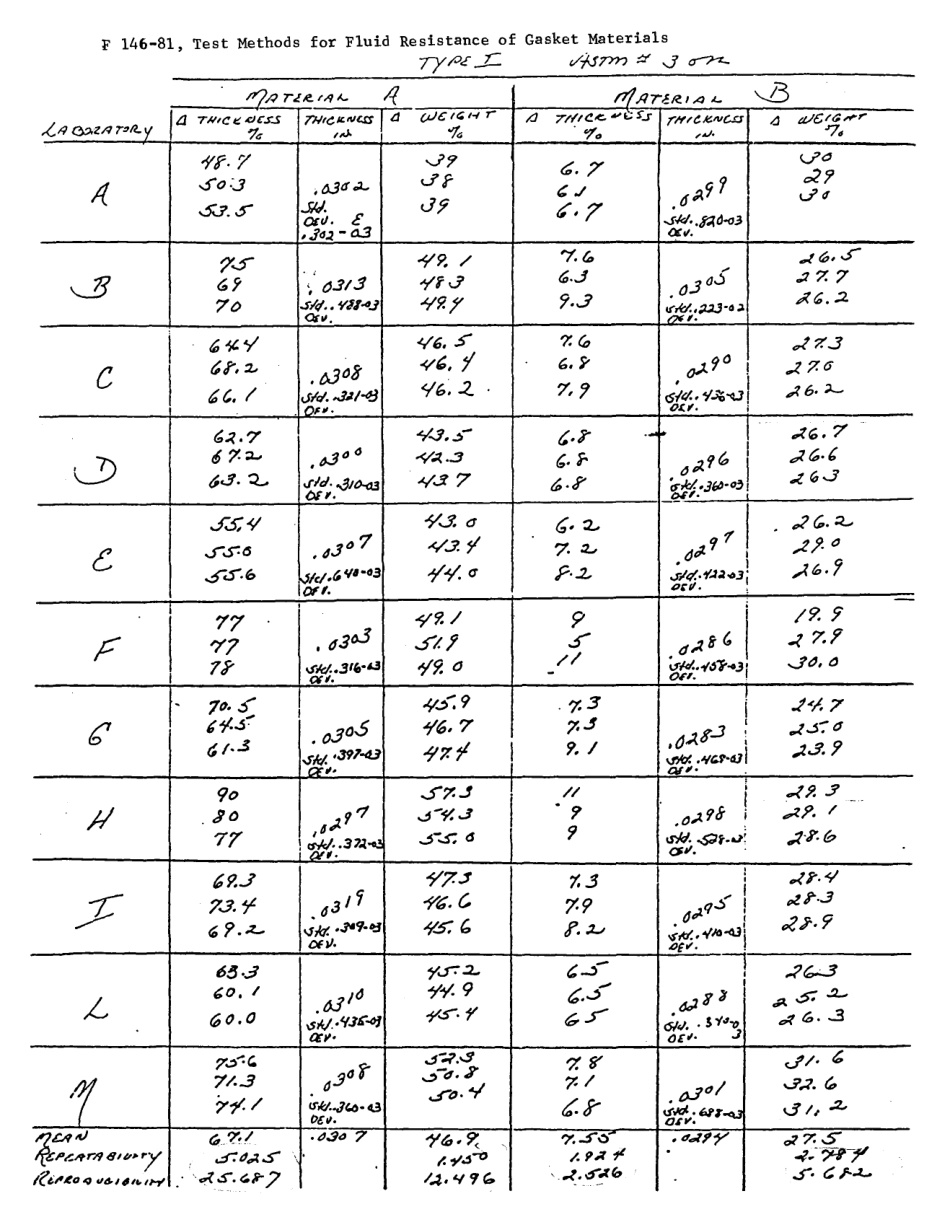 F 146-81, Test Methods for Fluid Resistance of Gasket Materials
TYPE I ASTM # 3 OIL
MATERIAL A MATERIAL B
LABORATORY Δ THICKNESS % THICKNESS in. Δ WEIGHT % Δ THICKNESS % THICKNESS in. Δ WEIGHT %
48.7 39 6.7 30
A 50.3 .0302 38 6.1 .0299 29
53.5 Std. DEV. E .302-03 39 6.7 Std. .820-03 DEV. 30
75 49.1 7.6 26.5
B 69 .0313 48.3 6.3 .0305 27.7
70 Std. .488-03 DEV. 49.4 9.3 Std. .223-02 DEV. 26.2
64.4 46.5 7.6 27.3
C 68.2 .0308 46.4 6.8 .0290 27.0
66.1 Std. .321-03 DEV. 46.2 7.9 Std. .436-03 DEV. 26.2
62.7 43.5 6.8 26.7
D 67.2 .0300 42.3 6.8 .0296 26.6
63.2 Std. .310-03 DEV. 43.7 6.8 Std. .360-03 DEV. 26.3
55.4 43.0 6.2 26.2
E 55.0 .0307 43.4 7.2 .0297 29.0
55.6 Std. .640-03 DEV. 44.0 8.2 Std. .422-03 DEV. 26.9
77 49.1 9 19.9
F 77 .0303 51.9 5 .0286 27.9
78 Std. .316-03 DEV. 49.0 11 Std. .458-03 DEV. 30.0
70.5 45.9 7.3 24.7
G 64.5 .0305 46.7 7.3 .0283 25.0
61.3 Std. .397-03 DEV. 47.4 9.1 Std. .468-03 DEV. 23.9
90 57.3 11 29.3
H 80 .0297 54.3 9 .0298 29.1
77 Std. .372-03 DEV. 55.0 9 Std. .528-03 DEV. 28.6
69.3 47.3 7.3 28.4
I 73.4 .0319 46.6 7.9 .0295 28.3
69.2 Std. .309-03 DEV. 45.6 8.2 Std. .410-03 DEV. 28.9
63.3 45.2 6.5 26.3
L 60.1 .0310 44.9 6.5 .0288 25.2
60.0 Std. .435-03 DEV. 45.4 6.5 Std. .340-03 DEV. 26.3
75.6 52.3 7.8 31.6
M 71.3 .0308 50.8 7.1 .0301 32.6
74.1 Std. .360-03 DEV. 50.4 6.8 Std. .688-03 DEV. 31.2
MEAN 67.1 .0307 46.9 7.55 .0294 27.5
REPEATABILITY 5.025 1.450 1.924 2.784
REPRODUCIBILITY 25.687 12.496 2.526 5.682